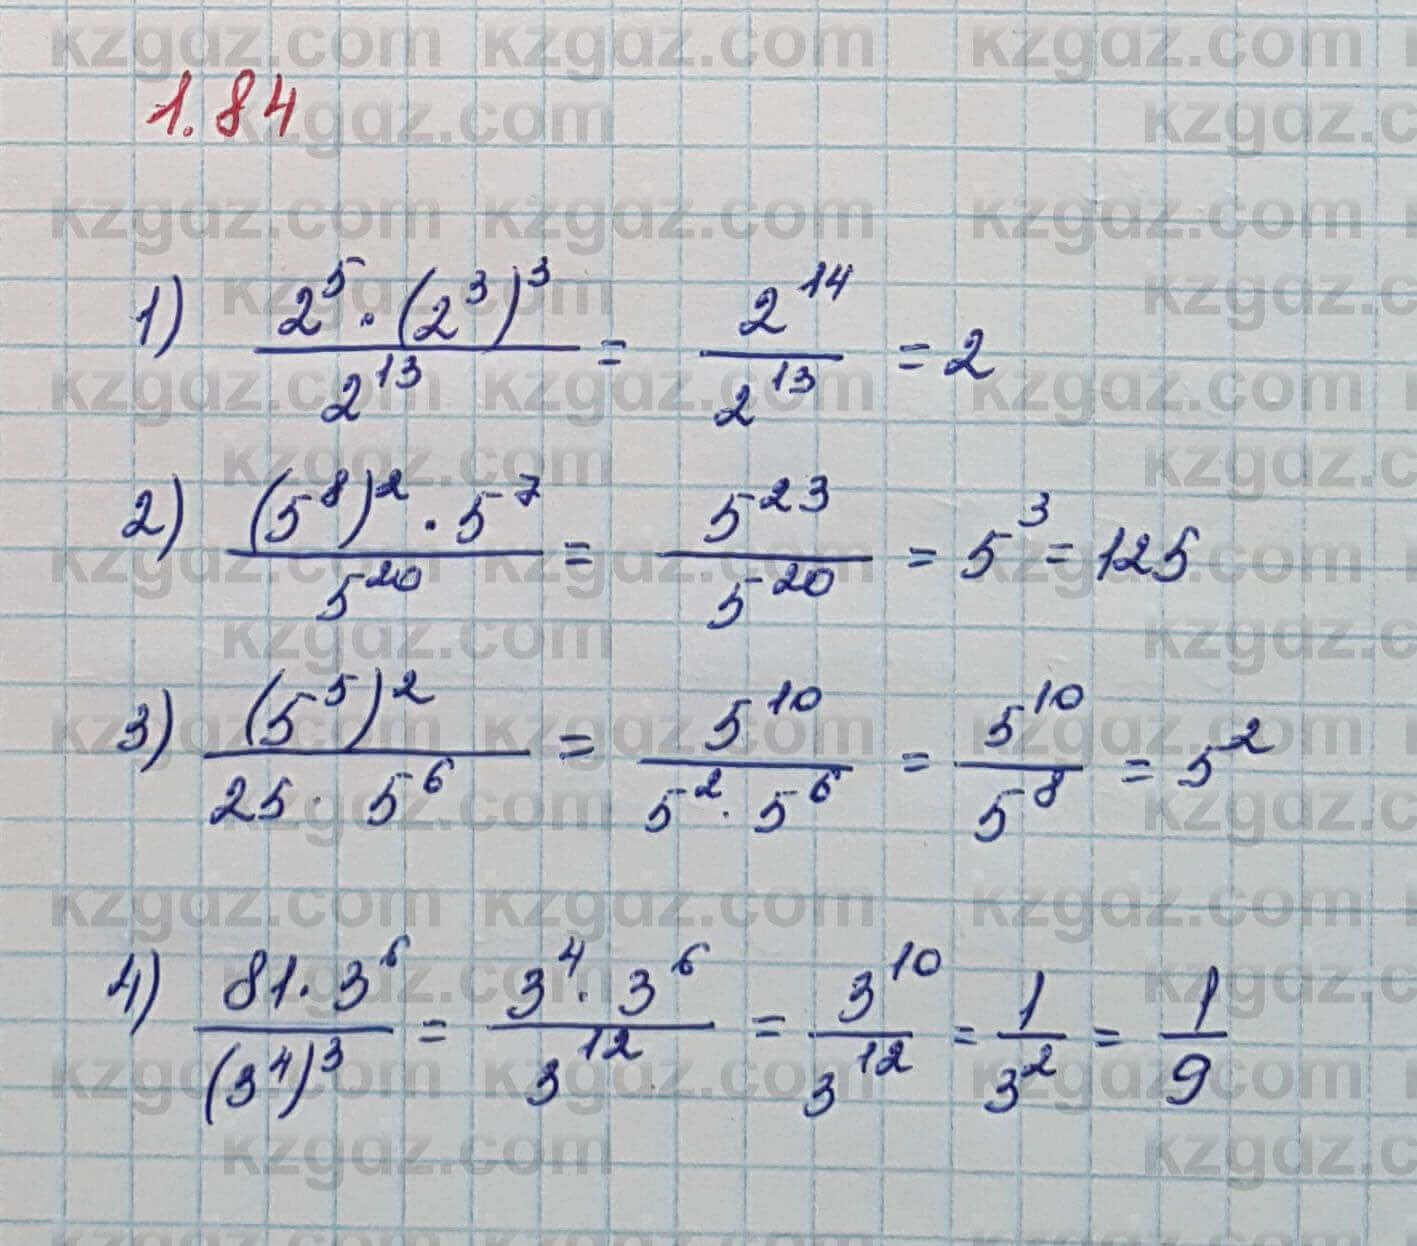 1.84
1) \frac{2^5 · (2^3)^3}{2^{13}} = \frac{2^{14}}{2^{13}} = 2
2) \frac{(5^8)^2 · 5^7}{5^{20}} = \frac{5^{23}}{5^{20}} = 5^3 = 125
3) \frac{(5^5)^2}{25 · 5^6} = \frac{5^{10}}{5^2 · 5^6} = \frac{5^{10}}{5^8} = 5^2
4) \frac{81 · 3^6}{(3^4)^3} = \frac{3^4 · 3^6}{3^{12}} = \frac{3^{10}}{3^{12}} = \frac{1}{3^2} = \frac{1}{9}
kzgdz.com